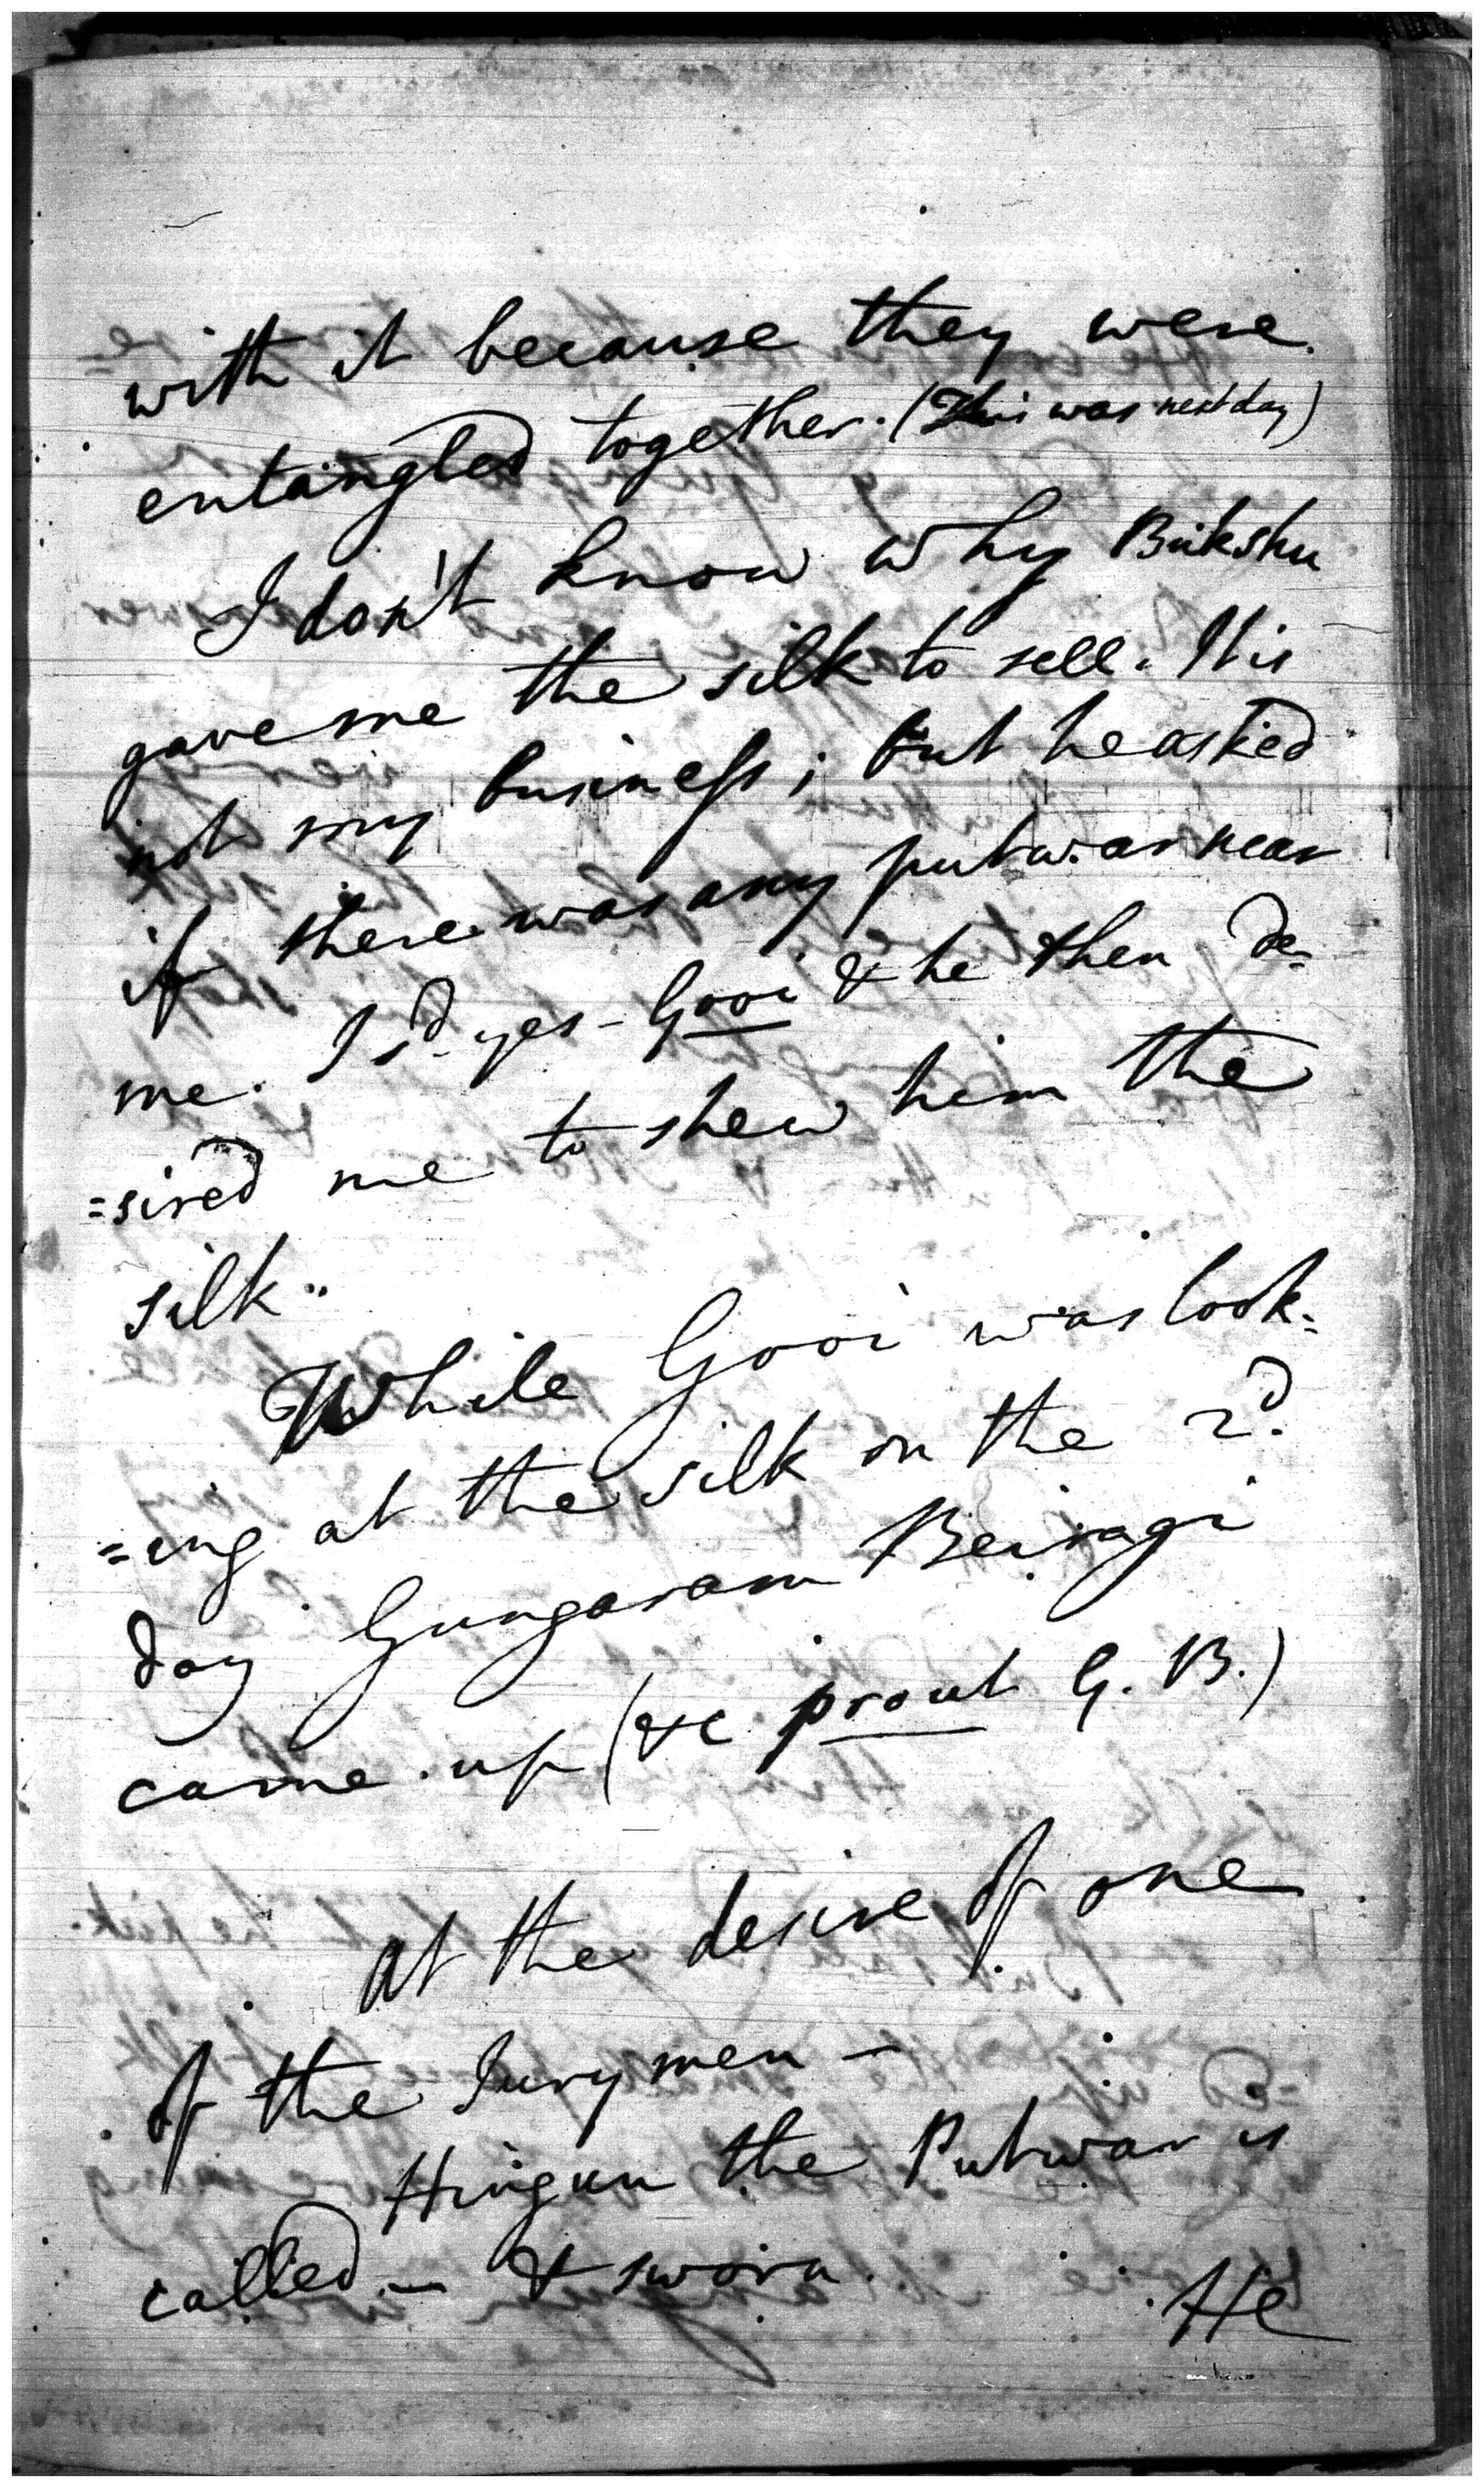 with it because they were
entangled together. (This was next day)
I don't know why Bukshu
gave me the silk to sell. It is
not my business; but he asked
if there was any putwar near
me. I sd. yes - Gooi & he then de=
=sired me to shew him the
silk"
While Gooi was look=
=ing at the silk on the 2d.
day Gungaram Beiragi
came up (&c prout G. B.)
At the desire of one
of the Jurymen —
Hingun the Putwar is
called — & sworn.
He